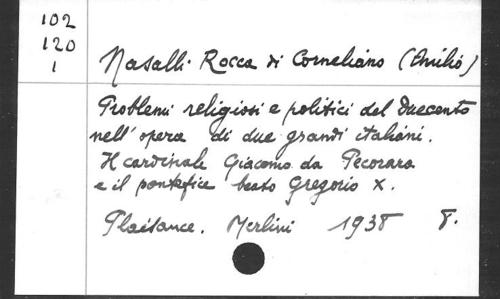 102
120
1
Nasalli-Rocca di Corneliano (Emilio)
Problemi religiosi e politici del Duecento
nell'opera di due grandi italiani.
Il cardinale Giacomo da Pecorara
e il pontefice beato Gregorio X.
Plaisance. Merlini 1938 8.